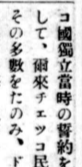 コ國獨立當時の誓約
して、爾來チエツコ民
その多數をたのみ、ド